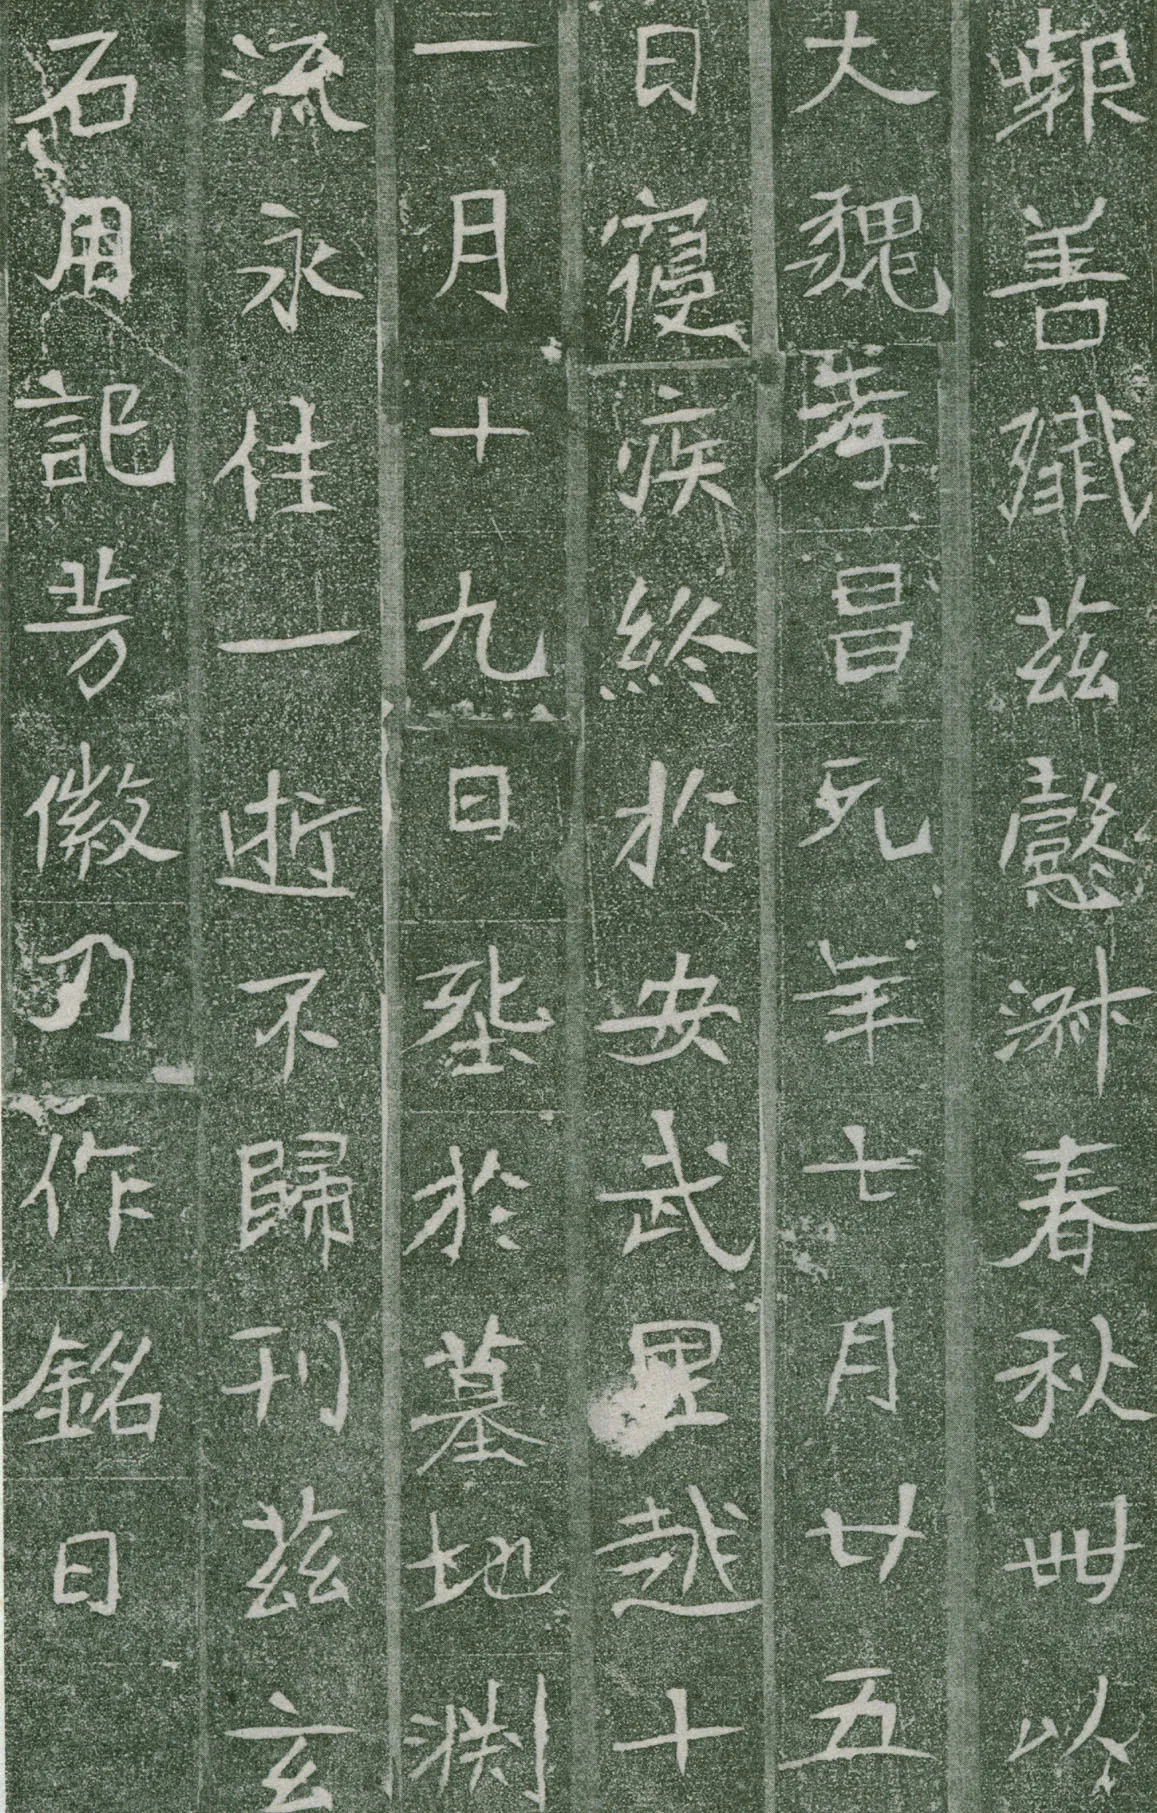 報善殲茲懿淋春秋卌以
大魏孝昌元年七月廿五
日寑疾終於安武里越十
一月十九日塟於墓地渕
流永住一逝不歸刊茲玄
石用記芳徽乃作銘曰